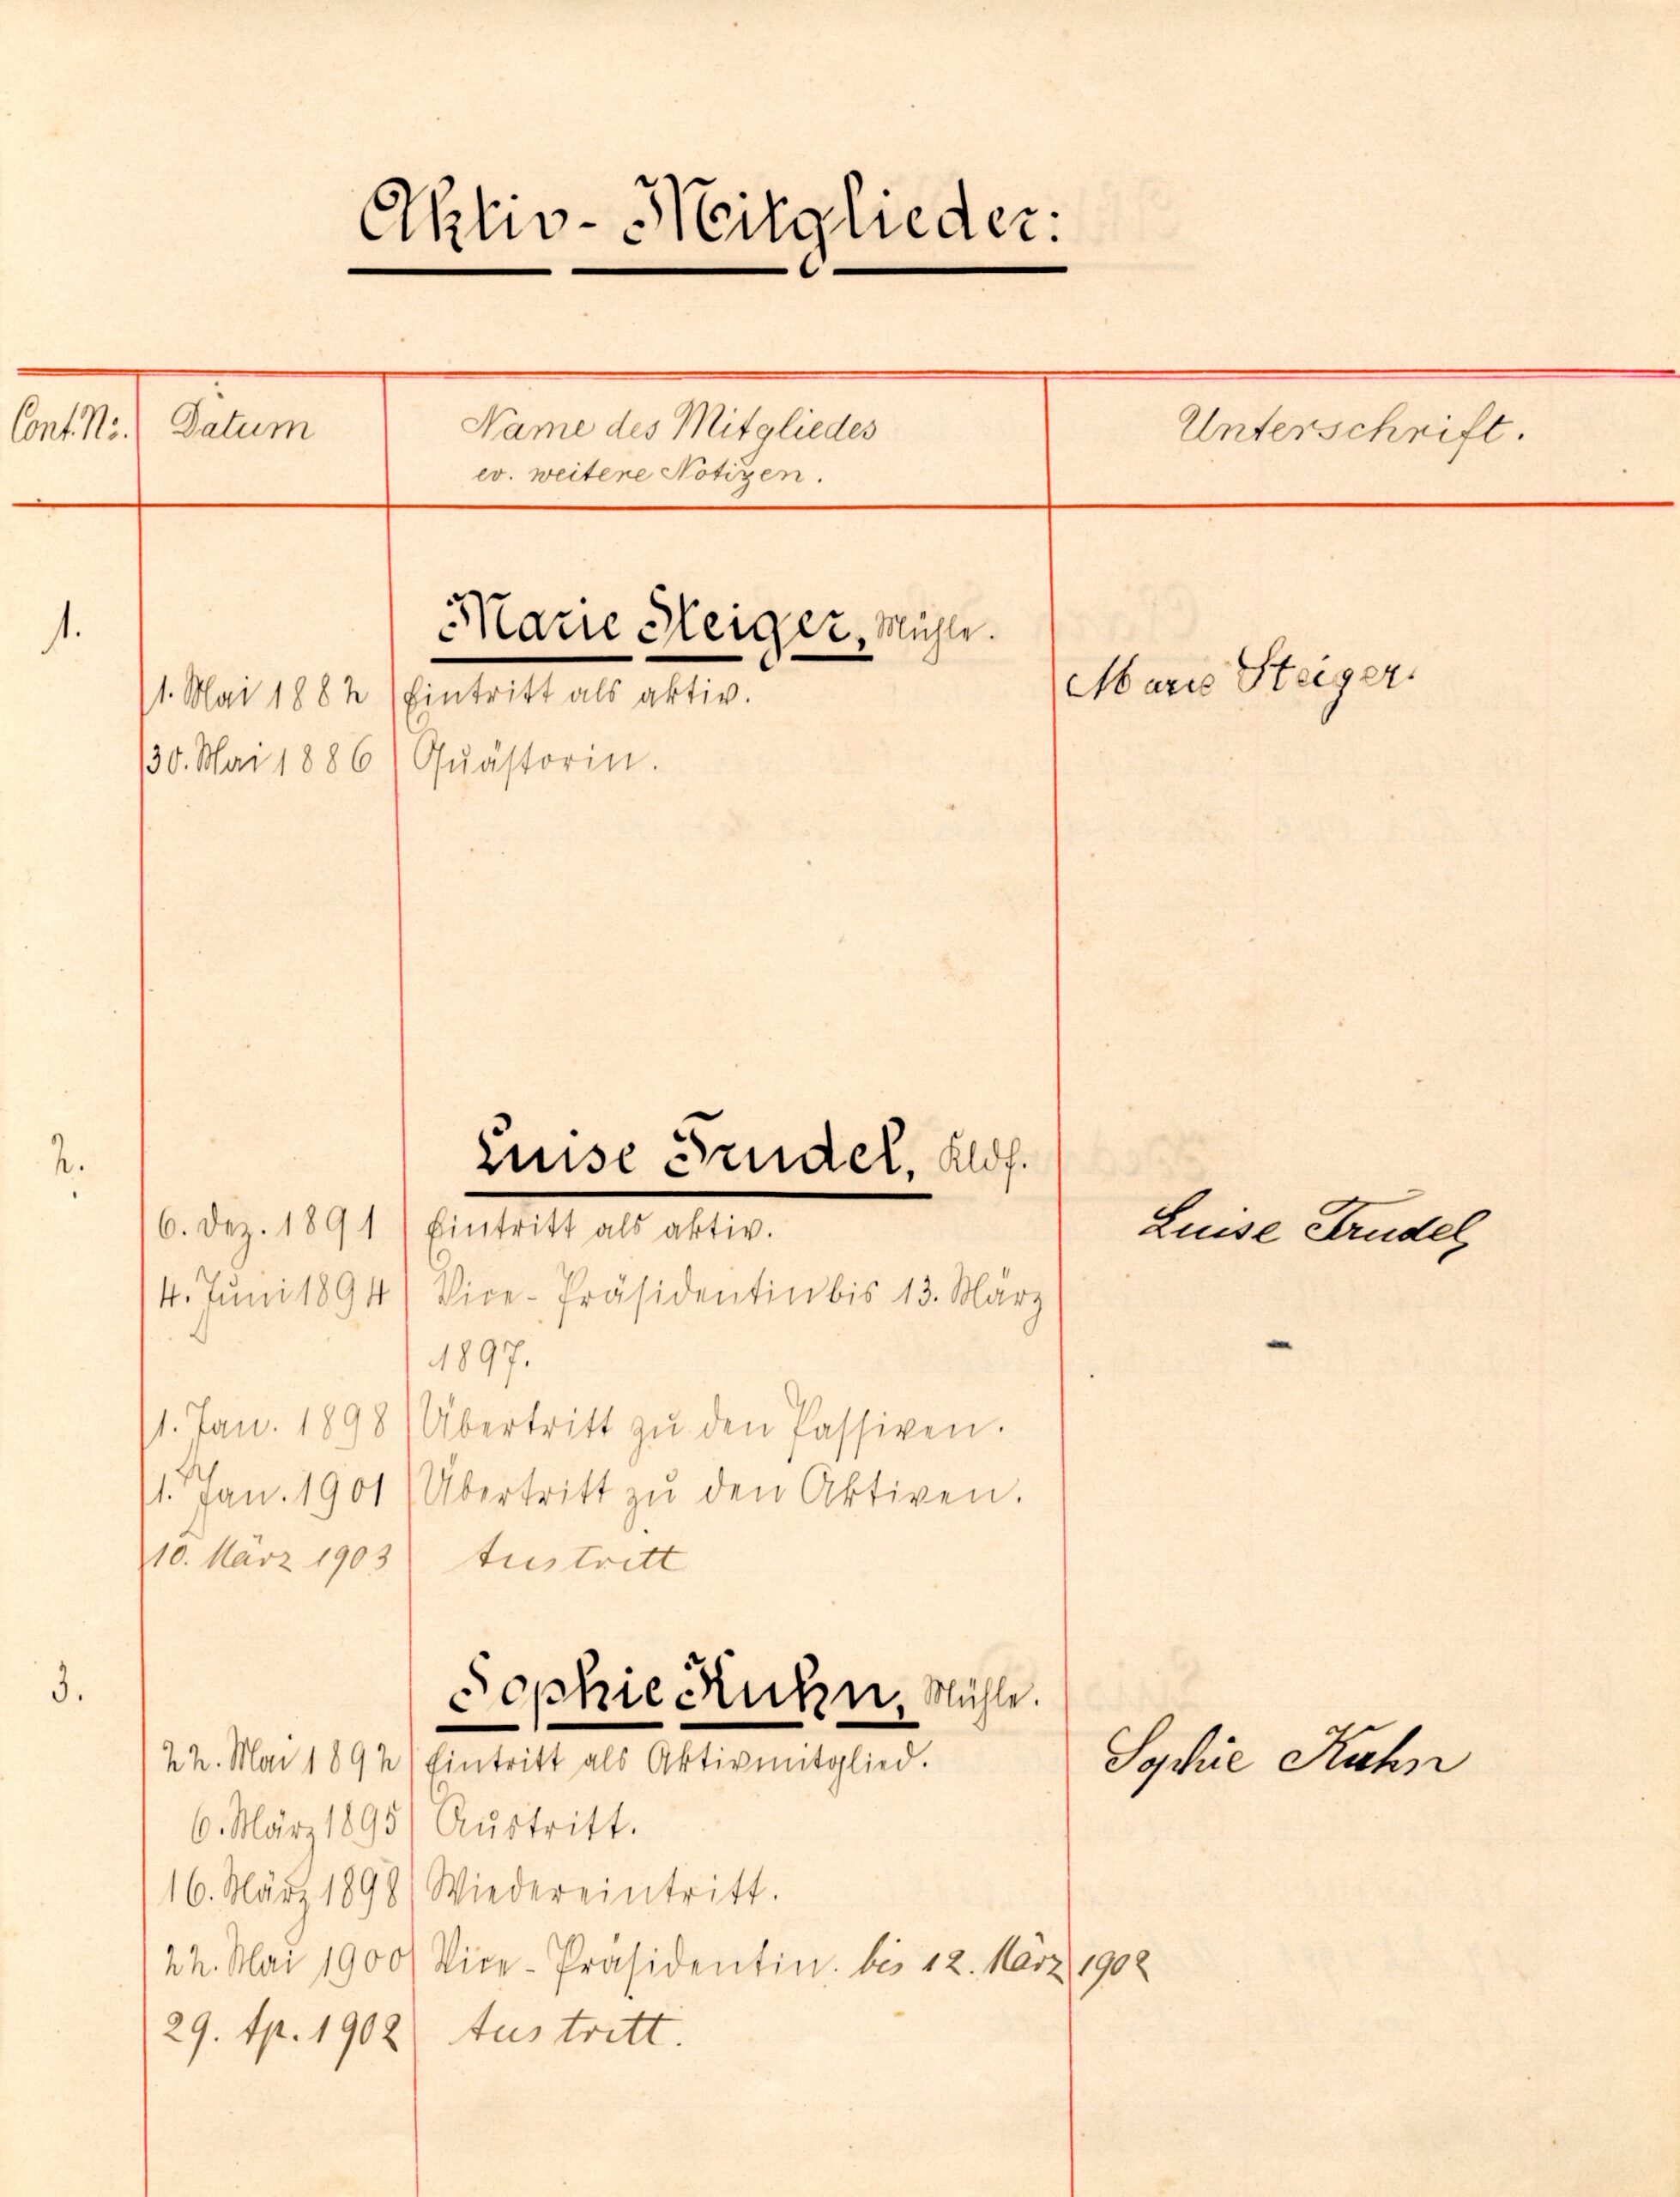 Aktiv-Mitglieder:
Cont. No. Datum Name des Mitgliedes Unterschrift.
ev. weitere Notizen.
1. Marie Steiger, Mühle.
Marie Steiger.
1. Mai 1882 Eintritt als aktiv.
30. Mai 1886 Quästorin.
2. Luise Trudel, Kldf.
Luise Trudel,
6. Dez. 1891 Eintritt als aktiv.
4. Juni 1894 Vice-Präsidentin bis 13. März
1897.
1. Jan. 1898 Übertritt zu den Passiven.
1. Jan. 1901 Übertritt zu den Aktiven.
10. März 1903 Austritt
3. Sophie Kuhn, Mühle.
Sophie Kuhn
22. Mai 1892 Eintritt als Aktivmitglied.
6. März 1895 Austritt.
16. März 1898 Wiedereintritt.
22. Mai 1900 Vice-Präsidentin. bis 12. März 1902
29. Ap. 1902 Austritt.